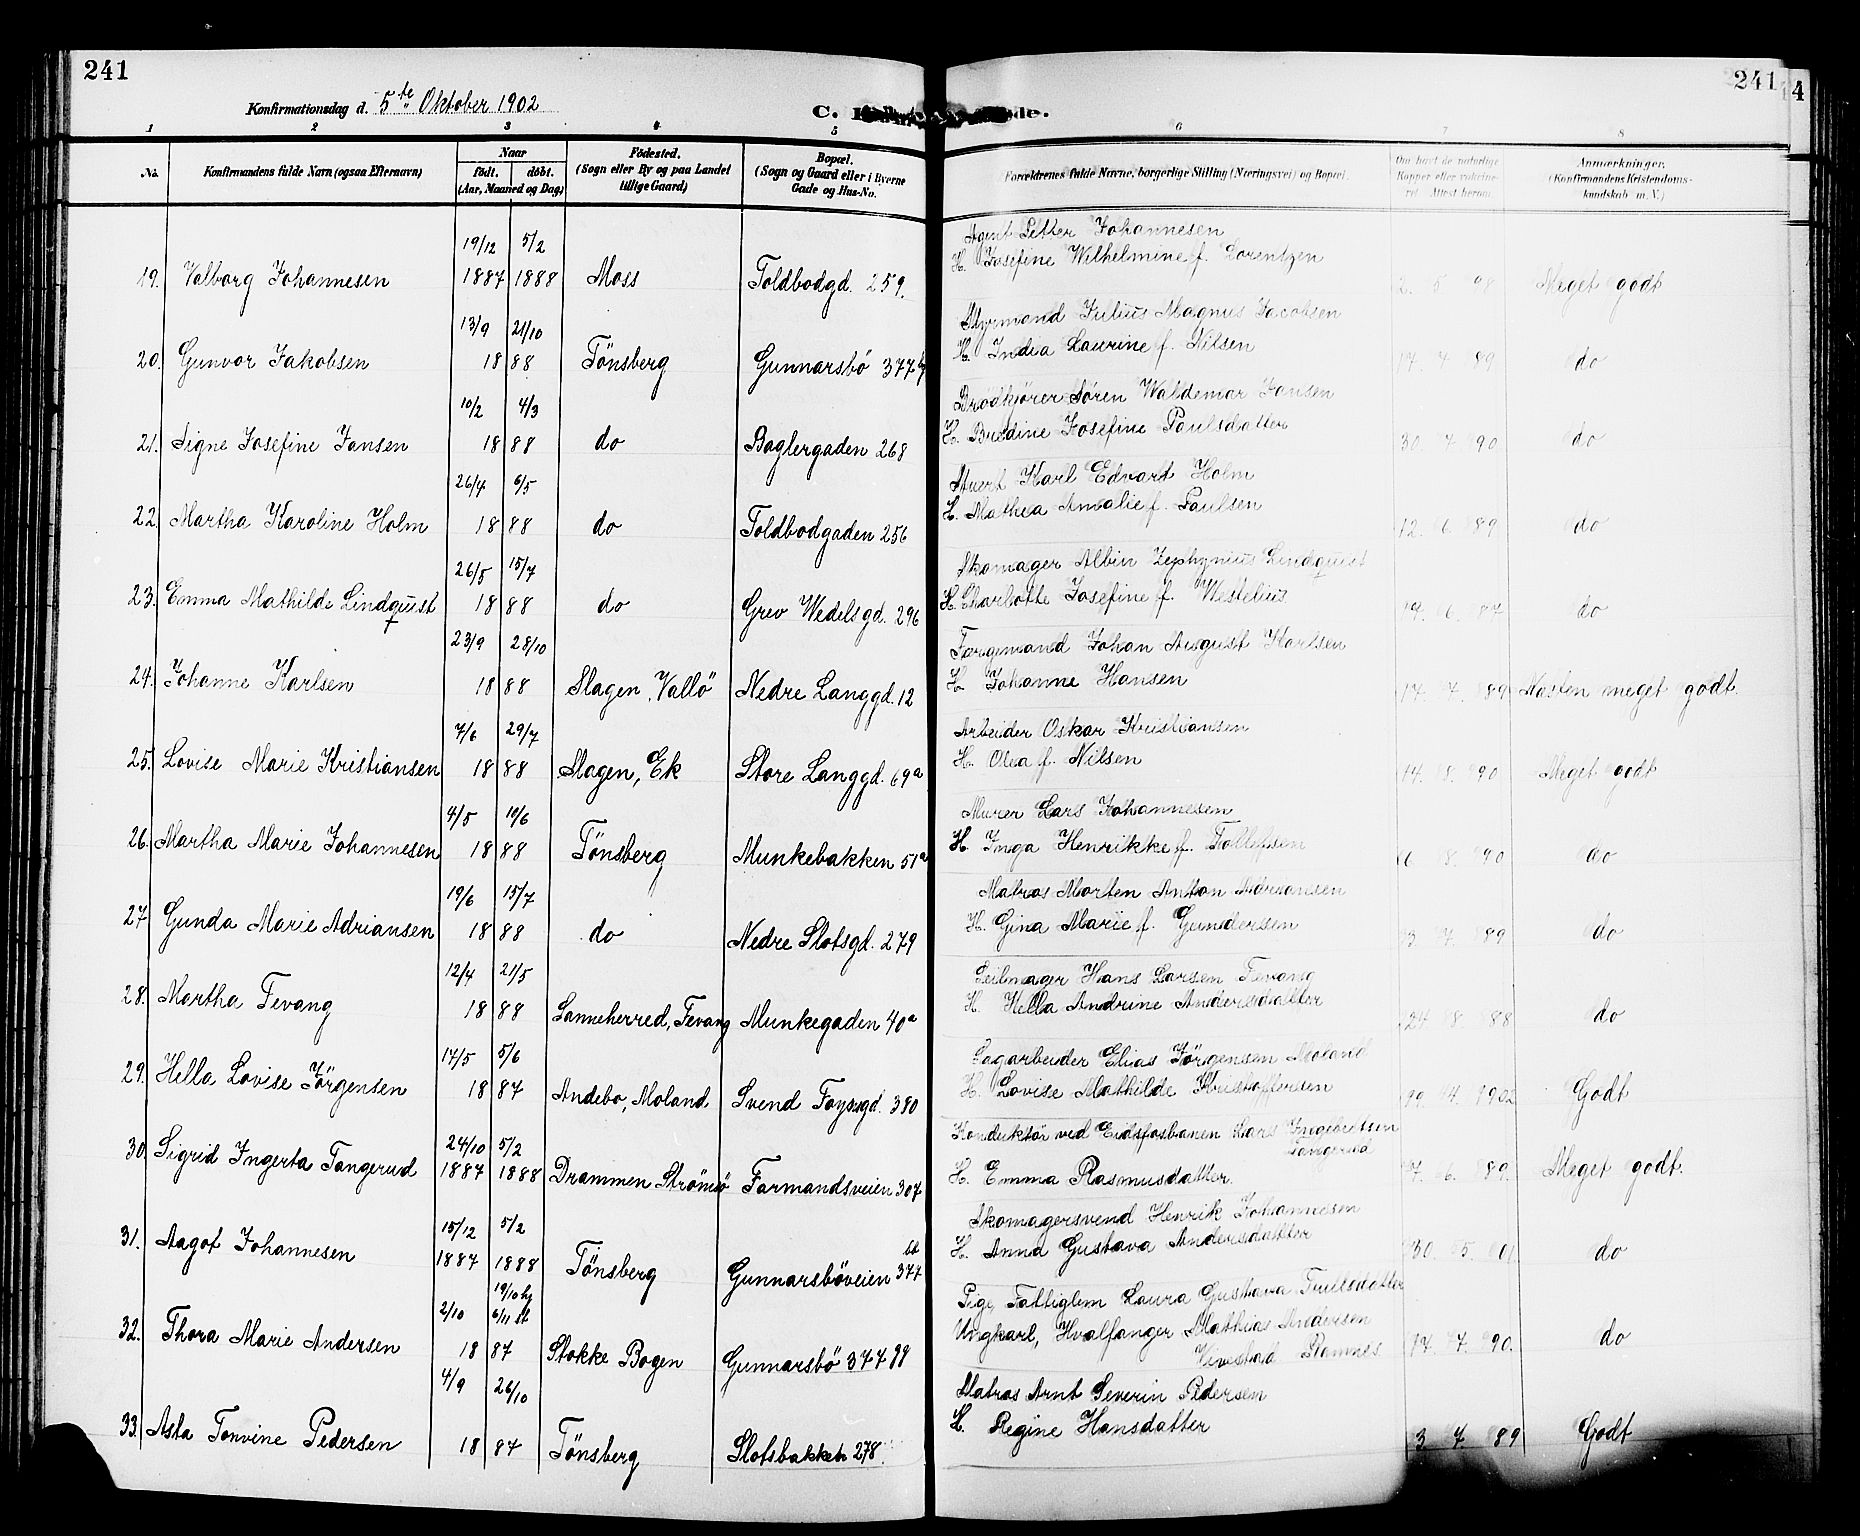 241
Konfirmationsdag d. 5te Oktober 1902
C.
de.
241
4
1 2 3 4 5 6 7 8
No.
Konfirmandens fulde Navn (ogsaa Efternavn)
Naar
födt. döbt.
(Aar, Maaned og Dag)
Födested.
(Sogn eller By og paa Landet
tillige Gaard)
Bopæl.
(Sogn og Gaard eller i Byerne
Gade og Hus-No.
Forældrenes fulde Navne, borgerlige Stilling (Næringsvei) og Bopæl.
Om havt de naturlige
Kopper eller vakcine-
ret. Attest herom.
Anmærkninger,
(Konfirmandens Kristendoms-
kundskab m. V.)
19/12 5/2 Agent Petter Johannesen
19. Valborg Johannesen 1887 1888 Moss Toldbodgd. 259. H. Josefine Wilhelmine f. Lorentzen 5 98 Meget godt
13/9 21/10 Styrmand Julius Magnus Jacobsen
20. Gunvor Jakobsen 18 88 Tönsberg Gunnarsbö 377 H. India Laurine f. Nilsen 17. 7 89 do
10/2 4/3 Brödkjörer Sören Waldemar Jansen
21. Signe Josefine Jansen 18 88 do Baglergaden 268 H. Bredine Josefine Paulsdatter 30. 7 90 do
26/4 6/5 Stuert Karl Edvart Holm
22. Martha Karoline Holm 18 88 do Toldbodgaden 256 H. Mathea Amalie f. Paulsen 12. 6. 89 do
26/5 15/7 Skomager Albin Zephyrius Lindquist
23. Emma Mathilde Lindquist 18 88 do Grev Wedelsgd. 296 H. Charlotte Josefine f. Westelius 6. 87 do
23/9 28/10 Fargemand Johan August Karlsen
24. Johanne Karlsen 18 88 Slagen, Vallö Nedre Langgd. 12 H. Johanne Hansen 17. 7. 89 Næsten meget godt.
7/6 29/7 Arbeider Oskar Kristiansen
25. Lovise Marie Kristiansen 18 88 Slagen, Ek Store Langgd. 69a H. Olea f. Nilsen 14. 8. 90 Meget godt
4/5 10/6 Murer Lars Johannesen
26. Martha Marie Johannesen 18 88 Tönsberg Munkebakken 51a H. Inga Henrikke f. Tollefsen 6 8. 90 do
19/6 15/7 Matros Morten Anton Adriansen
27 Gunda Marie Adriansen 18 88 do Nedre Slotsgd. 279 H. Gina Marie f. Gundersen 3. 7. 89 do
12/4 21/5 Seilmager Hans Larsen Fevang
28. Martha Fevang 18 88 Sanneherred, Fevang Munkegaden 40a H. Hella Andrine Andersdatter 24. 8. 88 do
17/5 5/6 Sagarbeider Elias Jörgensen Moland
29. Hella Lovise Jörgensen 18 87 Andebo, Moland Svend Foynsgd. 380 H. Lovise Mathilde Kristoffersen Godt
24/10 5/2 Konduktör ved Eidsfosbanen Lars Ingebretsen
Tangerud
30 Sigrid Ingerta Tangerud 1887 1888 Drammen Strömsö Farmandsveien 307 H. Emma Rasmusdatter. 7. 6. 89. Meget godt.
15/12 5/2 Skomagersvend Henrik Johannesen
31. Aagot Johannesen 1887 1888 Tönsberg Gunnarsböveien 377 H. Anna Gustava Andersdatter 30. 5. 01 do
19/10 hj Pige, Fattiglem Laura Gustava Trulsdatter
2/10 6/11 st Ungkarl, Hvalfanger Mathias Andersen
32. Thora Marie Andersen 18 87 Stokke Bogen Gunnarsbö 377 Vivestad Ramnes 17. 7. 90. do
4/9 26/10 Matros Arnt Severin Pedersen
33. Asta Tonvine Pedersen 18 87 Tönsberg Slotsbakken 278 H. Regine Hansdatter 3 7 89 Godt